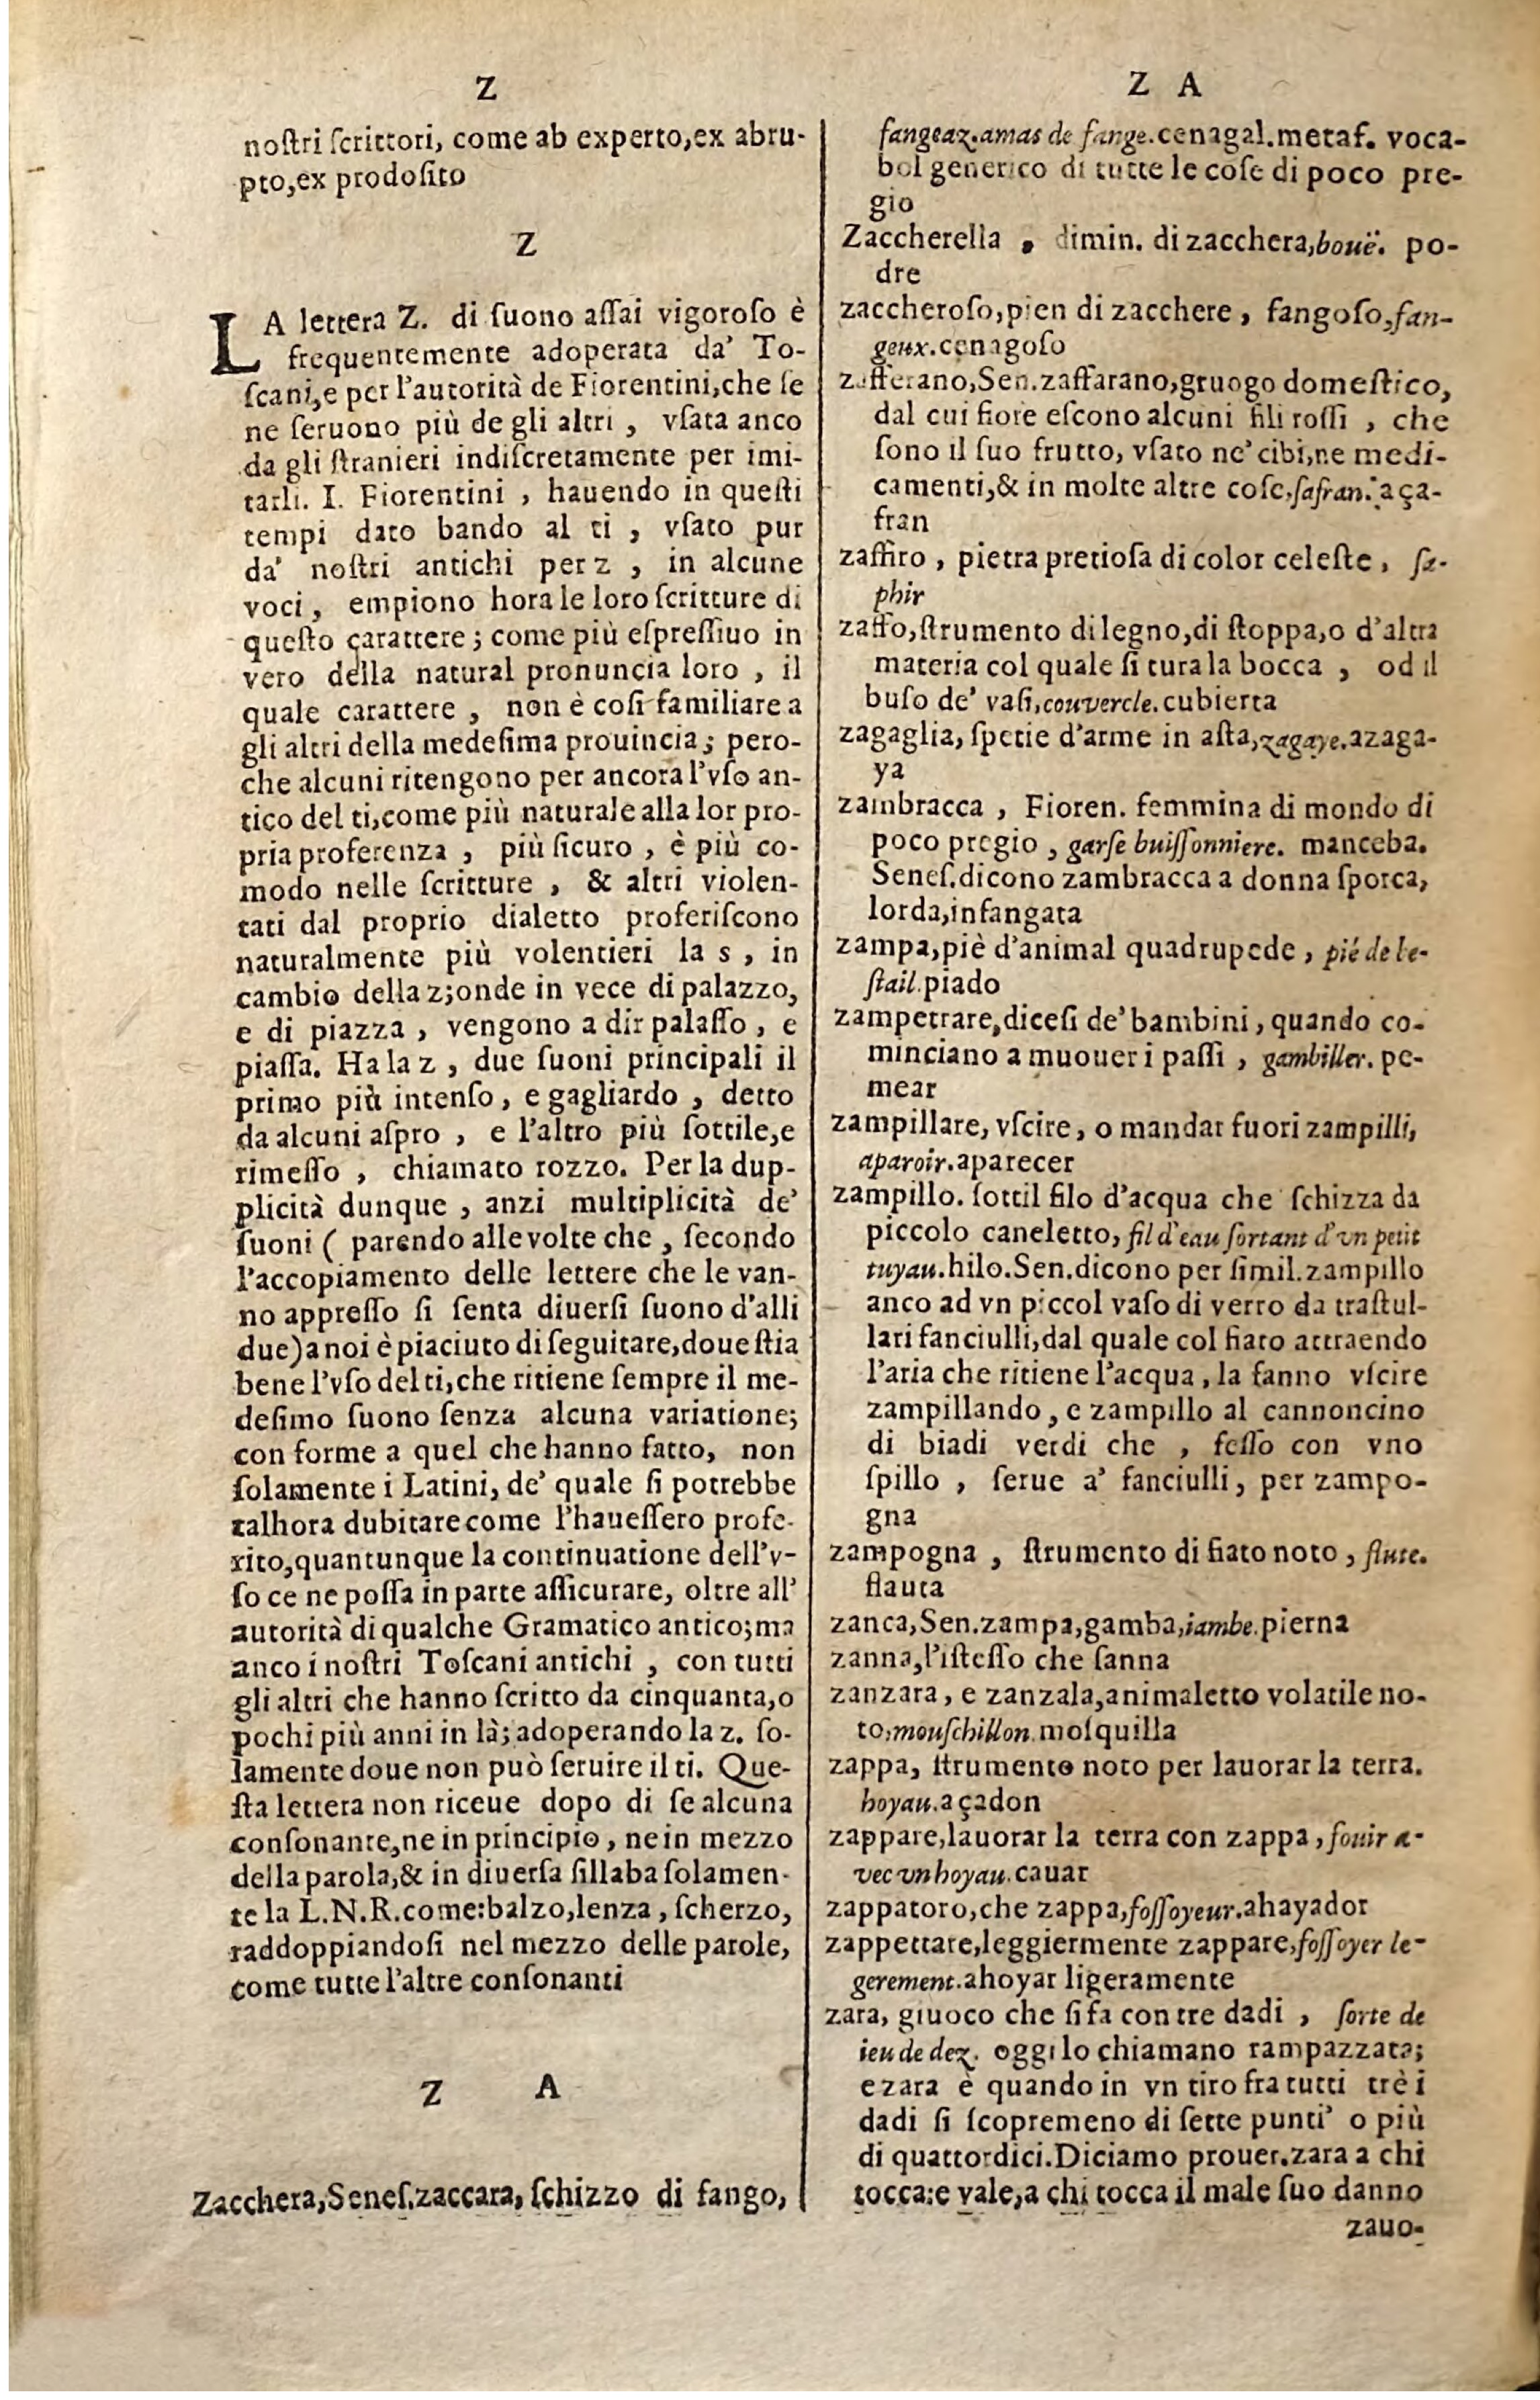 Z
noſtri ſcrittori, come ab experto,ex abru-
pto,ex prodoſito
Z
LA lettera Z. di ſuono aſſai vigoroſo è
frequentemente adoperata da' To-
ſcani,e per l'autorità de Fiorentini,che ſe
ne ſeruono più de gli altri , vſata anco
da gli ſtranieri indiſcretamente per imi-
tarli. I. Fiorentini , hauendo in queſti
tempi dato bando al ti , vſato pur
da' noſtri antichi per z , in alcune
voci , empiono hora le loro ſcritture di
queſto carattere ; come più eſpreſſiuo in
vero della natural pronuncia loro , il
quale carattere , non è coſi familiare a
gli altri della medeſima prouincia ; pero-
che alcuni ritengono per ancora l'vſo an-
tico del ti,come più naturale alla lor pro-
pria proferenza , più ſicuro , è più co-
modo nelle ſcritture , & altri violen-
tati dal proprio dialetto proferiſcono
naturalmente più volentieri la s , in
cambio della z;onde in vece di palazzo,
e di piazza , vengono a dir palaſſo , e
piaſſa. Ha la z , due ſuoni principali il
primo più intenſo, e gagliardo , detto
da alcuni aſpro , e l'altro più ſottile,e
rimeſſo , chiamato rozzo. Per la dup-
plicità dunque , anzi multiplicità de'
ſuoni ( parendo alle volte che , ſecondo
l'accopiamento delle lettere che le van-
no appreſſo ſi ſenta diuerſi ſuono d'alli
due)a noi è piaciuto di ſeguitare,doue ſtia
bene l'vſo del ti,che ritiene ſempre il me-
deſimo ſuono ſenza alcuna variatione;
con forme a quel che hanno fatto, non
ſolamente i Latini, de' quale ſi potrebbe
talhora dubitare come l'haueſſero profe-
rito,quantunque la continuatione dell'v-
ſo ce ne poſſa in parte aſſicurare, oltre all'
autorità di qualche Gramatico antico;ma
anco i noſtri Toſcani antichi , con tutti
gli altri che hanno ſcritto da cinquanta,o
pochi più anni in là; adoperando la z. ſo-
lamente doue non può ſeruire il ti. Que-
ſta lettera non riceue dopo di ſe alcuna
conſonante,ne in principio , ne in mezzo
della parola,& in diuerſa ſillaba ſolamen-
te la L.N.R.come:balzo,lenza , ſcherzo,
raddoppiandoſi nel mezzo delle parole,
come tutte l'altre conſonanti
Z A
Zacchera,Seneſ.zaccara, ſchizzo di fango,
Z A
fangeaz.amas de fange.cenagal.metaf. voca-
bol generico di tutte le coſe di poco pre-
gio
Zaccherella , dimin. di zacchera,bouë. po-
dre
zaccheroſo,pien di zacchere , fangoſo,fan-
geux.cenagoſo
zafferano,Sen.zaffarano,gruogo domeſtico,
dal cui fiore eſcono alcuni fili roſſi , che
ſono il ſuo frutto, vſato ne' cibi,ne medi-
camenti,& in molte altre coſe.ſafran.açа-
fran
zaffiro , pietra pretioſa di color celeſte , ſa-
phir
zaffo,ſtrumento di legno,di ſtoppa,o d'altra
materia col quale ſi tura la bocca , od il
buſo de' vaſi,couvercle.cubierta
zagaglia, ſpetie d'arme in aſta,zagaye.azaga-
ya
zambracca , Fioren. femmina di mondo di
poco pregio , garſe buiſſonniere. manceba.
Seneſ.dicono zambracca a donna ſporca,
lorda,infangata
zampa,piè d'animal quadrupede , pié de be-
ſtail.piado
zampettare,diceſi de' bambini , quando co-
minciano a muouer i paſſi , gambiller. pe-
mear
zampillare, vſcire , o mandar fuori zampilli,
aparoir.aparecer
zampillo. ſottil filo d'acqua che ſchizza da
piccolo caneletto, fil d'eau ſortant d'vn petit
tuyau.hilo.Sen.dicono per ſimil.zampillo
anco ad vn piccol vaſo di vetro da traſtul-
lari fanciulli,dal quale col fiato attraendo
l'aria che ritiene l'acqua , la fanno vſcire
zampillando , e zampillo al cannoncino
di biadi verdi che , feſſo con vno
ſpillo , ſerue a' fanciulli, per zampo-
gna
zampogna , ſtrumento di fiato noto , flute.
flauta
zanca,Sen.zampa,gamba,iambe.pierna
zanna,l'iſteſſo che ſanna
zanzara , e zanzala,animaletto volatile no-
to,mouſchillon.moſquilla
zappa, ſtrumento noto per lauorar la terra.
hoyau.açadon
zappare,lauorar la terra con zappa , fouir a-
vec vn hoyau.cauar
zappatoro,che zappa,foſſoyeur.ahayador
zappettare,leggiermente zappare,foſſoyer le-
gerement.ahoyar ligeramente
zara, giuoco che ſi fa con tre dadi , ſorte de
ieu de dez. oggi lo chiamano rampazzata;
e zara è quando in vn tiro fra tutti trè i
dadi ſi ſcopremeno di ſette punti' o più
di quattordici.Diciamo prouer.zara a chi
tocca:e vale,a chi tocca il male ſuo danno
zauo-